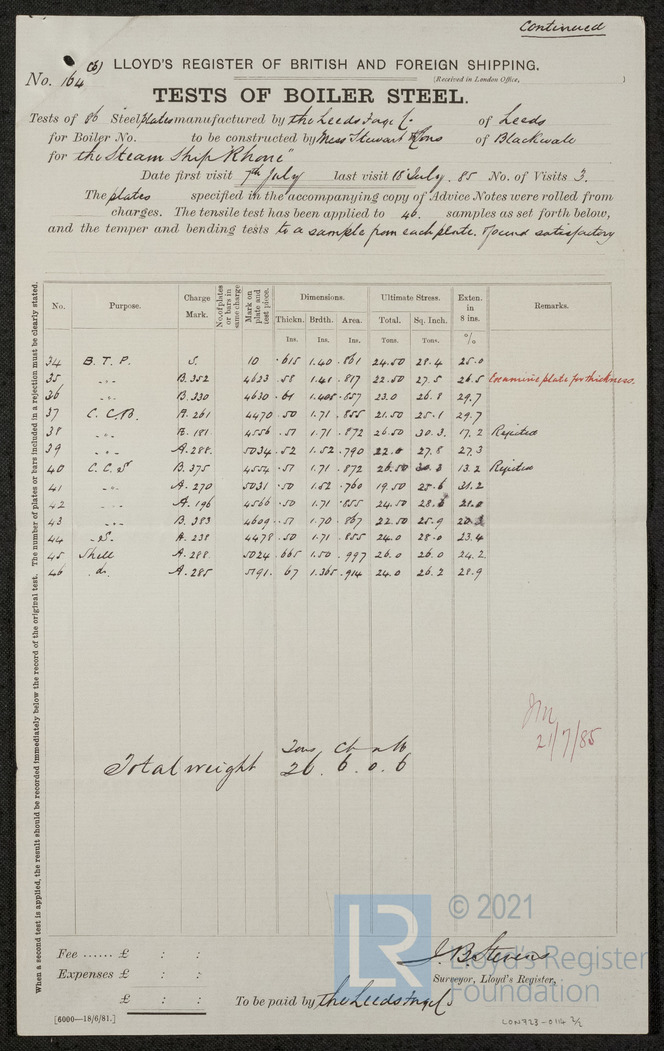 Continued
No. 164 (b) LLOYD'S REGISTER OF BRITISH AND FOREIGN SHIPPING.
(Received in London Office, )
TESTS OF BOILER STEEL.
Tests of 86 Steel plates manufactured by the Leeds Forge Co. of Leeds
for Boiler No. to be constructed by Mess Stewart & Sons of Blackwall
for the Steam Ship "Rhone"
Date first visit 7th July last visit 15 July. 85 No. of Visits 3.
The plates specified in the accompanying copy of Advice Notes were rolled from
charges. The tensile test has been applied to 46. samples as set forth below,
and the temper and bending tests to a sample from each plate. Found satisfactory
When a second test is applied, the result should be recorded immediately below the record of the original test. The number of plates or bars included in a rejection must be clearly stated.
No. Purpose. Charge Mark. No. of plates or bars in same charge Mark on plate and test piece. Dimensions. Ultimate Stress. Exten. in 8 ins. Remarks.
Thickn. Brdth. Area. Total. Sq. Inch.
Ins. Ins. Ins. Tons. Tons. %
34 B. T. P. S. 10 .615 1.40 .861 24.50 28.4 25.0
35 " B.352 4623 .58 1.41 .817 22.50 27.5 26.5 Examine plate for thickness.
36 " B.330 4630 .61 1.405 .857 23.0 26.8 29.7
37 C. C.B. A.261 4470 .50 1.71 .855 21.50 25.1 29.7
38 " A.181 4556 .51 1.71 .872 26.50 30.3. 17.2 Rejected
39 " A.288. 5034 .52 1.52 .790 22.0 27.8 27.3
40 C. C. S B.375 4554 .51 1.71 .872 26.50 30.3 13.2 Rejected
41 " A.270 5031 .50 1.52 .760 19.50 25.6 31.2
42 " A.196 4566 .50 1.71 .855 24.50 21.0
43 " B.383 4609 .51 1.70 .867 22.50 25.9
44 " S. A.238 4478 .50 1.71 .855 24.0 28.0 23.4
45 Shell A.288. 5024 .665 1.50 .997 26.0 26.0 24.2
46 do. A.285 5191. .67 1.365 .914 24.0 26.2 28.9
JM
21/7/85
Tons Ct
Total weight 26. 6. 0. 6
Fee ...... £ : :
Expenses £ : :
£ : :
J. B. Stevens
Surveyor, Lloyd's Register,
To be paid by the Leeds Forge Co
[6000—18/6/81.]
LON723-0114 2/2
LR
© 2021
Lloyd's Register
Foundation